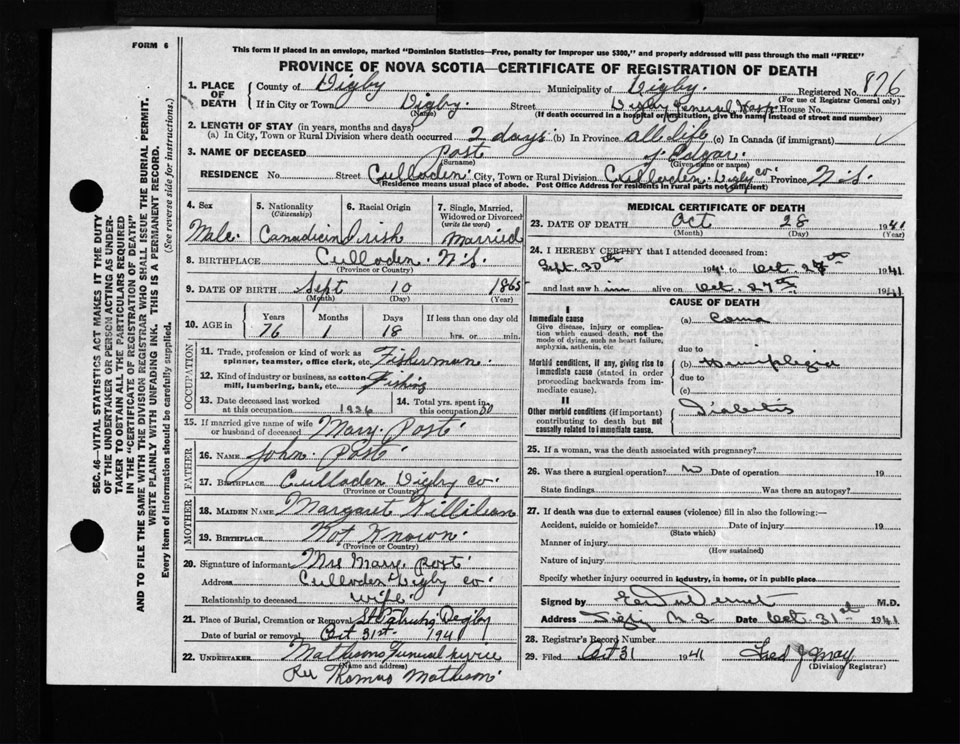 FORM 6
This form if placed in an envelope, marked "Dominion Statistics—Free, penalty for improper use $300," and properly addressed will pass through the mail "FREE"
PROVINCE OF NOVA SCOTIA—CERTIFICATE OF REGISTRATION OF DEATH
SEC. 46—VITAL STATISTICS ACT MAKES IT THE DUTY
OF THE UNDERTAKER OR PERSON ACTING AS UNDER-
TAKER TO OBTAIN ALL THE PARTICULARS REQUIRED
IN THE "CERTIFICATE OF REGISTRATION OF DEATH"
AND TO FILE THE SAME WITH THE DIVISION REGISTRAR WHO SHALL ISSUE THE BURIAL PERMIT.
WRITE PLAINLY WITH UNFADING INK. THIS IS A PERMANENT RECORD.
Every item of information should be carefully supplied. (See reverse side for instructions.)
1. PLACE OF DEATH
County of Digby Municipality of Digby Registered No. 876
(For use of Registrar General only)
If in City or Town Digby Street Digby General Hosp. House No.
(Name) (If death occurred in a hospital or institution, give the name instead of street and number)
2. LENGTH OF STAY (in years, months and days)
(a) In City, Town or Rural Division where death occurred 2 days (b) In Province all life (c) In Canada (if immigrant)
3. NAME OF DECEASED Post Edgar
(Surname) (Given name or names)
RESIDENCE No. Street Culloden City, Town or Rural Division Culloden Digby co. Province N.S.
(Residence means usual place of abode. Post Office Address for residents in rural parts not sufficient)
4. Sex Male
5. Nationality (Citizenship) Canadian
6. Racial Origin Irish
7. Single, Married, Widowed or Divorced (write the word) Married
8. BIRTHPLACE Culloden. N.S.
(Province or Country)
9. DATE OF BIRTH Sept 10 1865
(Month) (Day) (Year)
10. AGE in Years Months Days If less than one day old
76 1 18 hrs. or min.
OCCUPATION
11. Trade, profession or kind of work as spinner, teamster, office clerk, etc. Fisherman.
12. Kind of industry or business, as cotton mill, lumbering, bank, etc. Fishing
13. Date deceased last worked at this occupation 1936
14. Total yrs. spent in this occupation 50
15. If married give name of wife or husband of deceased Mary Post
FATHER
16. NAME John Post
17. BIRTHPLACE Culloden Digby co.
(Province or Country)
MOTHER
18. MAIDEN NAME Margaret
19. BIRTHPLACE Not Known
(Province or Country)
20. Signature of informant Mrs Mary Post
Address Culloden Digby co.
Relationship to deceased wife.
21. Place of Burial, Cremation or Removal Digby
Date of burial or removal Oct 31st 1941
22. UNDERTAKER Mathesons Funeral
(Name and address)
Per Thomas Matheson
MEDICAL CERTIFICATE OF DEATH
23. DATE OF DEATH Oct 28 1941
(Month) (Day) (Year)
24. I HEREBY CERTIFY that I attended deceased from:
Sept. 30th 1941 to Oct. 27th 1941
and last saw him alive on Oct. 27th 1941
CAUSE OF DEATH
I
Immediate cause
Give disease, injury or complication which caused death, not the mode of dying, such as heart failure, asphyxia, asthenia, etc.
(a) Coma
due to
Morbid conditions, if any, giving rise to immediate cause (stated in order proceeding backwards from immediate cause).
(b) Hemiplegia
due to
(c)
II
Other morbid conditions (if important) contributing to death but not causally related to immediate cause.
Diabetis
25. If a woman, was the death associated with pregnancy?
26. Was there a surgical operation? no Date of operation 19
State findings Was there an autopsy?
27. If death was due to external causes (violence) fill in also the following:—
Accident, suicide or homicide? Date of injury 19
(State which)
Manner of injury
(How sustained)
Nature of injury
Specify whether injury occurred in industry, in home, or in public place
Signed by M.D.
Address Digby N.S. Date Oct. 31st 1941
28. Registrar's Record Number
29. Filed Oct 31 1941 Fred J May
(Division Registrar)